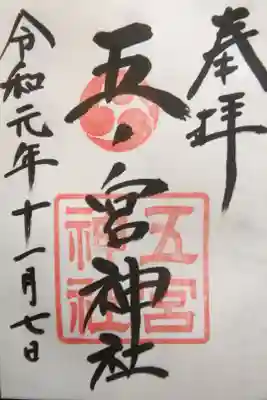 奉拝
五ノ宮神社
五宮
神社
令和元年十一月七日